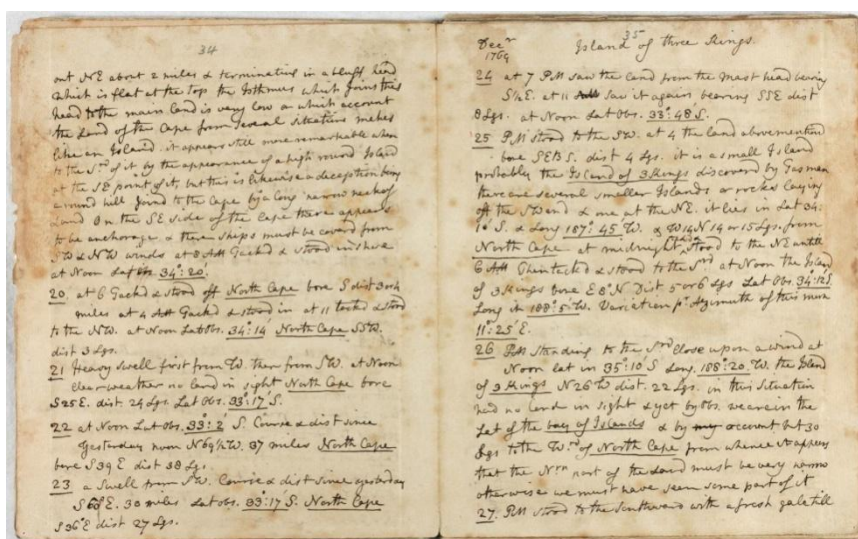 34
out NE about 2 miles & terminating in a bluff head
which is flat at the top the Isthmus which joins this
head to the main land is very low on which account
the Land of the Cape from several situations makes
like an Island. it appears still more remarkable when
to the S.rd of it by the appearance of a high round Island
at the SE point of it, but this is likewise a deception being
a round hill joind to the Cape by a long narrow neck of
Land on the SE side of the Cape there appears
to be anchorage & there ships must be coverd from
SW & NW winds at 8 AM Tackd & stood inshore
at Noon Lat obs. 34°: 20.
20. at 6 Tackd & stood off North Cape bore S dist 3 or 4
miles at 4 AM Tackd & stood in at 11 tackd & stood
to the NW. at Noon Lat obs. 34°: 14 North Cape SSW.
dist 3 Lgs.
21 Heavy Swell first from W. then from SW. at Noon
clear weather no land in sight North Cape bore
S 25 E. dist. 24 Lgs. Lat Obs. 33°: 17' S.
22 at Noon Lat obs. 33°: 2' S. Course & dist since
Yesterday noon N 69½ W. 37 miles North Cape
bore S 39 E dist 38 Lgs.
23 a Swell from SW. Course & dist since yesterday
S 60° E. 30 miles Lat obs. 33°: 17' S. North Cape
S 36° E dist 27 Lgs.
35
Decr
1769
Island of three Kings.
24 at 7 PM saw the land from the mast head bearing
S½E. at 11 saw it again bearing SSE dist
8 Lgs. at Noon Lat Obs. 33°: 48' S.
25 PM stood to the SW. at 4 the land abovemention
bore SEBS. dist 4 Lgs. it is a small Island
probably the Island of 3 Kings discoverd by Tasman
there are several smaller Islands or rocks laying
off the SW end & one at the NE. it lies in Lat 34:
10' S. & Long 187°: 45' W. & W 14 N 14 or 15 Lgs. from
North Cape at midnight stood to the NE untill
6 AM then tackd & stood to the S.rd at Noon the Island
of 3 Kings bore E 8° N. Dist 5 or 6 Lgs Lat Obs. 34°: 12' S.
Long in 188°: 5' W. Variation pr. Azimuth of this morn
11°: 25' E.
26 PM Standing to the S.rd close upon a wind at
Noon lat in 35°: 10' S Long. 188°: 20' W. the Island
of 3 Kings N 26 W dist. 22 Lgs. in this situation
had no land in sight & yet by obs. we are in the
Lat of the bay of Islands & by my account but 30
Lgs to the W.rd of North Cape from whence it appears
that the N.rn part of the Land must be very narrow
otherwise we must have seen some part of it
27. PM stood to the Southward with a fresh gale till